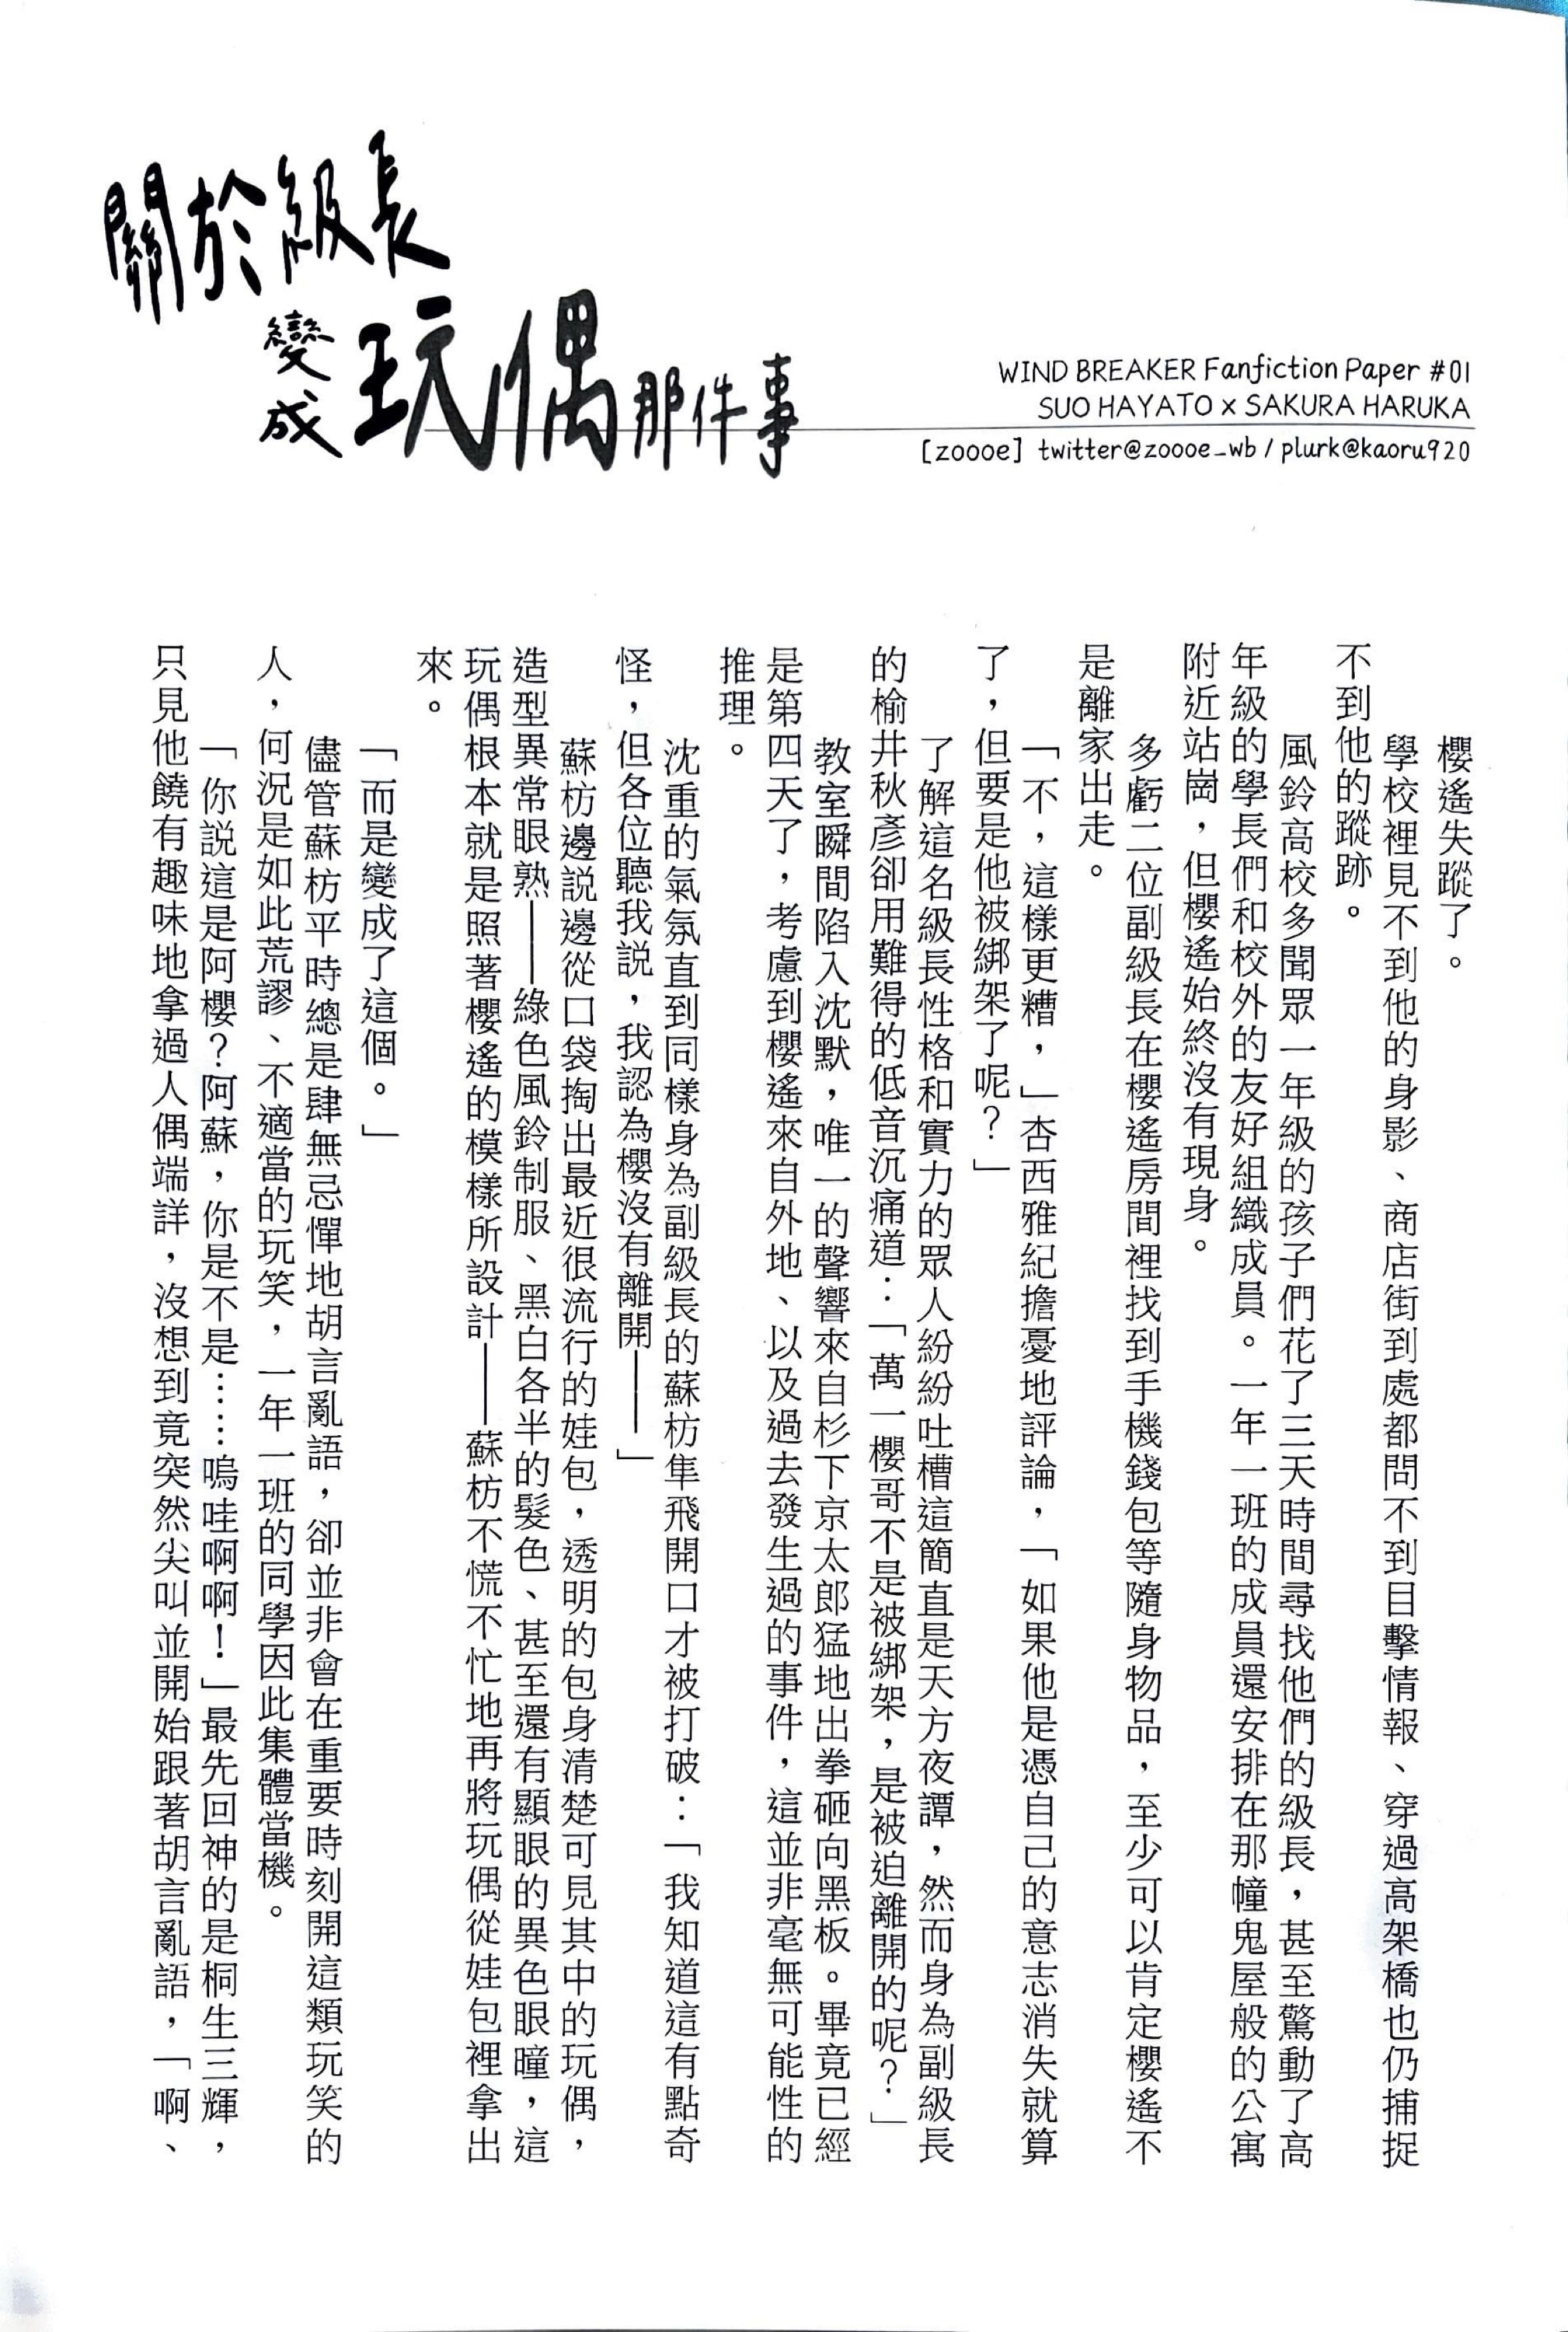 關於級長
變成玩偶那件事
WIND BREAKER Fanfiction Paper #01
SUO HAYATO x SAKURA HARUKA
[zoooe] twitter@zoooe_wb / plurk@kaoru920
櫻遙失蹤了。
學校裡見不到他的身影、商店街到處都問不到目擊情報、穿過高架橋也仍捕捉
不到他的蹤跡。
風鈴高校多聞眾一年級的孩子們花了三天時間尋找他們的級長，甚至驚動了高
年級的學長們和校外的友好組織成員。一年一班的成員還安排在那幢鬼屋般的公寓
附近站崗，但櫻遙始終沒有現身。
多虧二位副級長在櫻遙房間裡找到手機錢包等隨身物品，至少可以肯定櫻遙不
是離家出走。
「不，這樣更糟，」杏西雅紀擔憂地評論，「如果他是憑自己的意志消失就算
了，但要是他被綁架了呢？」
了解這名級長性格和實力的眾人紛紛吐槽這簡直是天方夜譚，然而身為副級長
的榆井秋彥卻用難得的低音沉痛道：「萬一櫻哥不是被綁架，是被迫離開的呢？」
教室瞬間陷入沈默，唯一的聲響來自杉下京太郎猛地出拳砸向黑板。畢竟已經
是第四天了，考慮到櫻遙來自外地、以及過去發生過的事件，這並非毫無可能性的
推理。
沈重的氣氛直到同樣身為副級長的蘇枋隼飛開口才被打破：「我知道這有點奇
怪，但各位聽我說，我認為櫻沒有離開——」
蘇枋邊說邊從口袋掏出最近很流行的娃包，透明的包身清楚可見其中的玩偶，
造型異常眼熟——綠色風鈴制服、黑白各半的髮色、甚至還有顯眼的異色眼瞳，這
玩偶根本就是照著櫻遙的模樣所設計——蘇枋不慌不忙地再將玩偶從娃包裡拿出
來。
「而是變成了這個。」
儘管蘇枋平時總是肆無忌憚地胡言亂語，卻並非會在重要時刻開這類玩笑的
人，何況是如此荒謬、不適當的玩笑，一年一班的同學因此集體當機。
「你說這是阿櫻？阿蘇，你是不是……嗚哇啊啊！」最先回神的是桐生三輝，
只見他饒有趣味地拿過人偶端詳，沒想到竟突然尖叫並開始跟著胡言亂語，「啊、